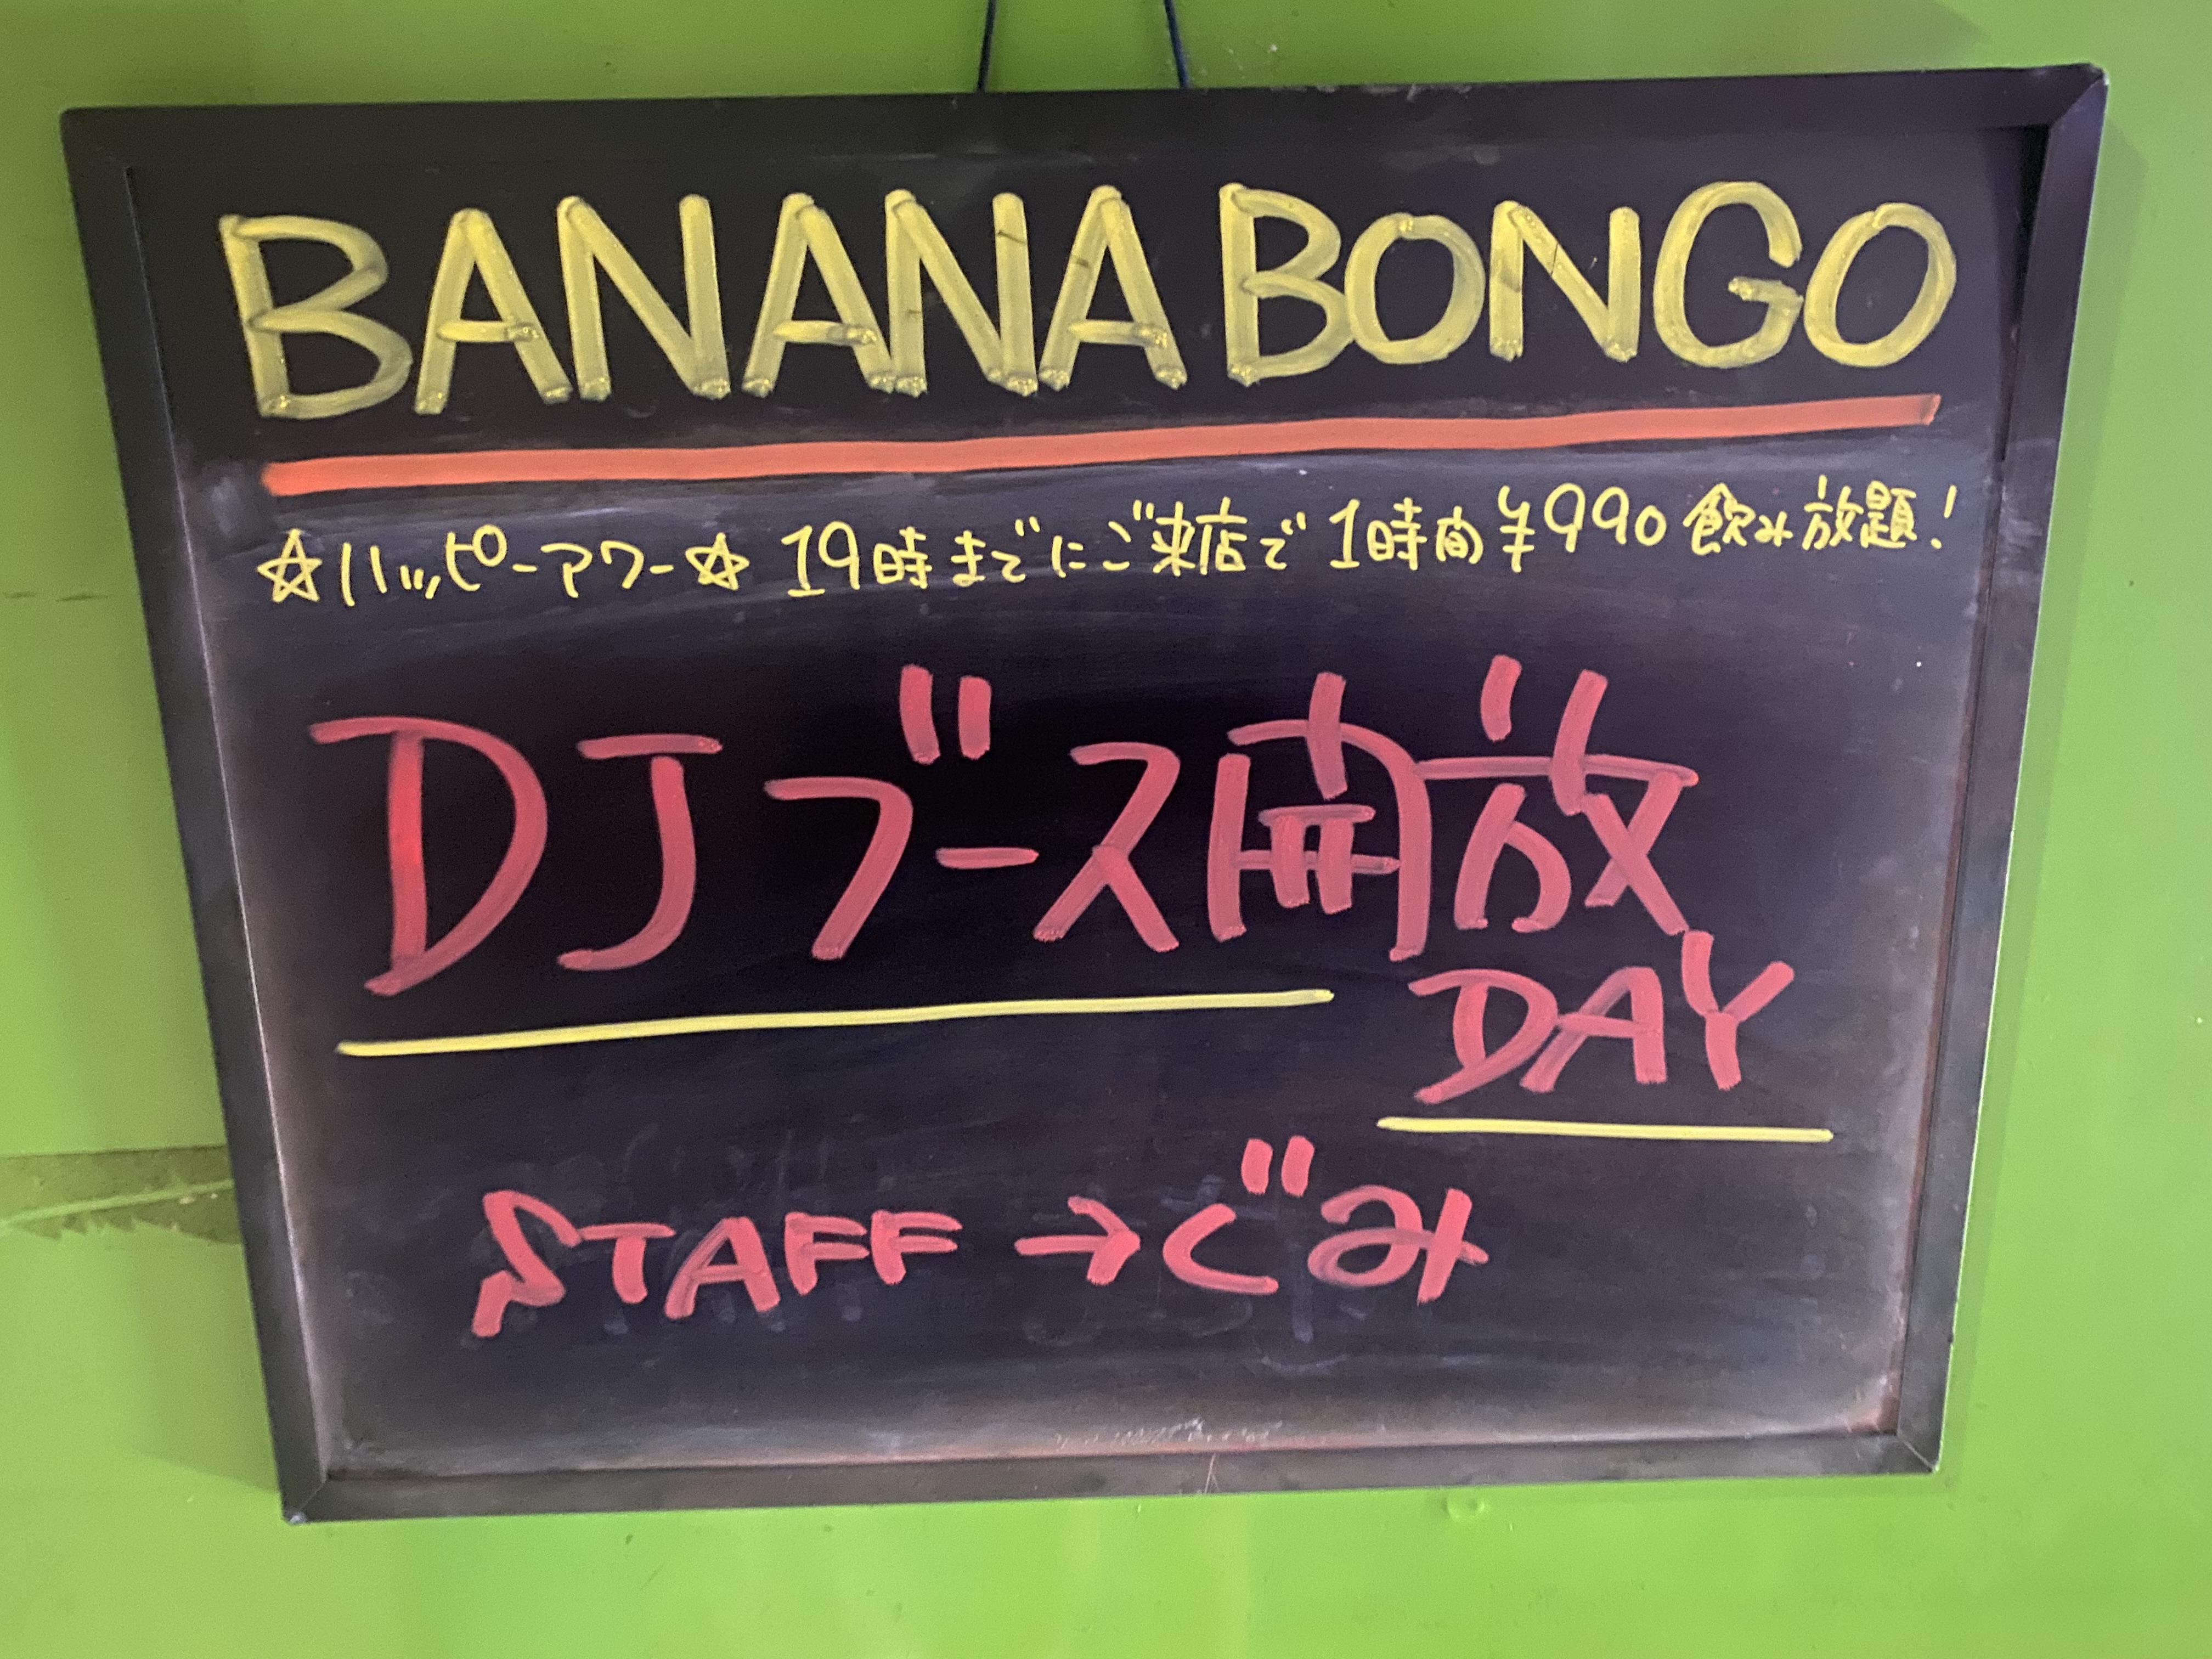 BANANA BONGO
☆ハッピーアワー☆ 19時までにご来店で 1時間¥990 飲み放題!
DJブース開放
DAY
STAFF→ぐみ